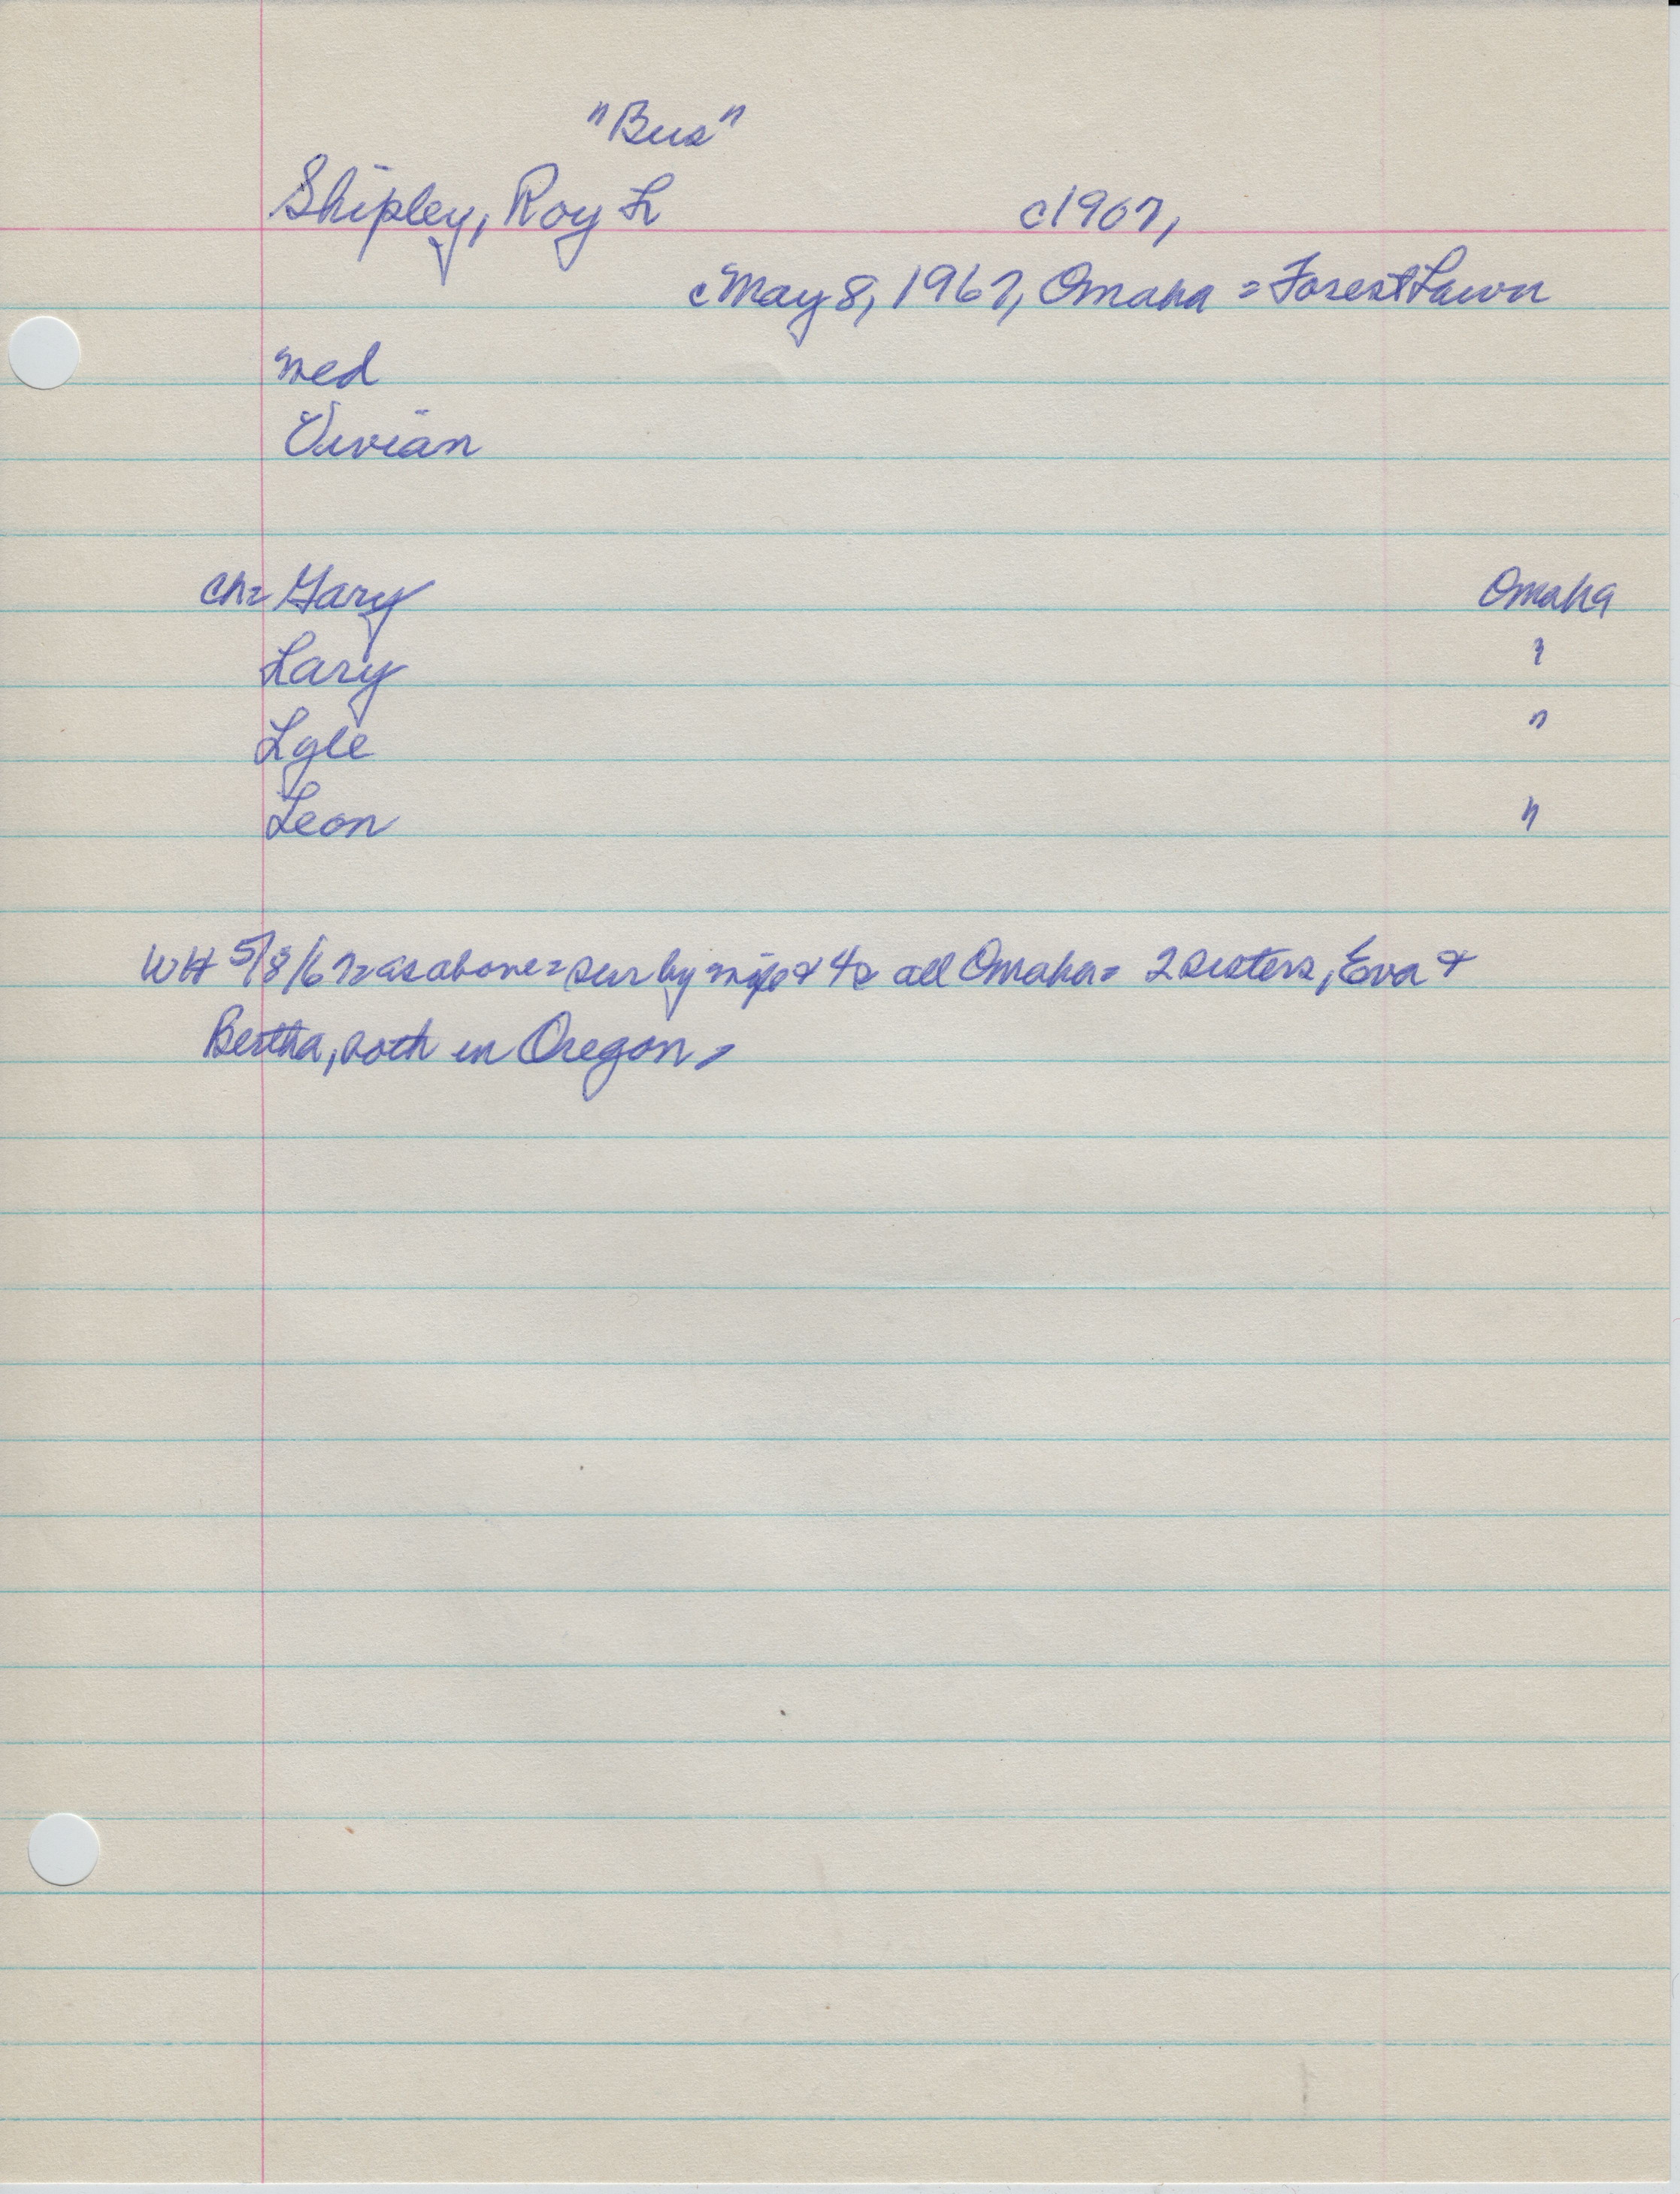 "Bus"
Shipley, Roy L c1907,
cMay 8, 1967, Omaha = Forest Lawn
med
Vivian
ch= Gary Omaha
Lary "
Lyle "
Leon "
WH 5/8/67= as above = sur by wife & 4s all Omaha = 2 sisters, Eva &
Bertha, both in Oregon,